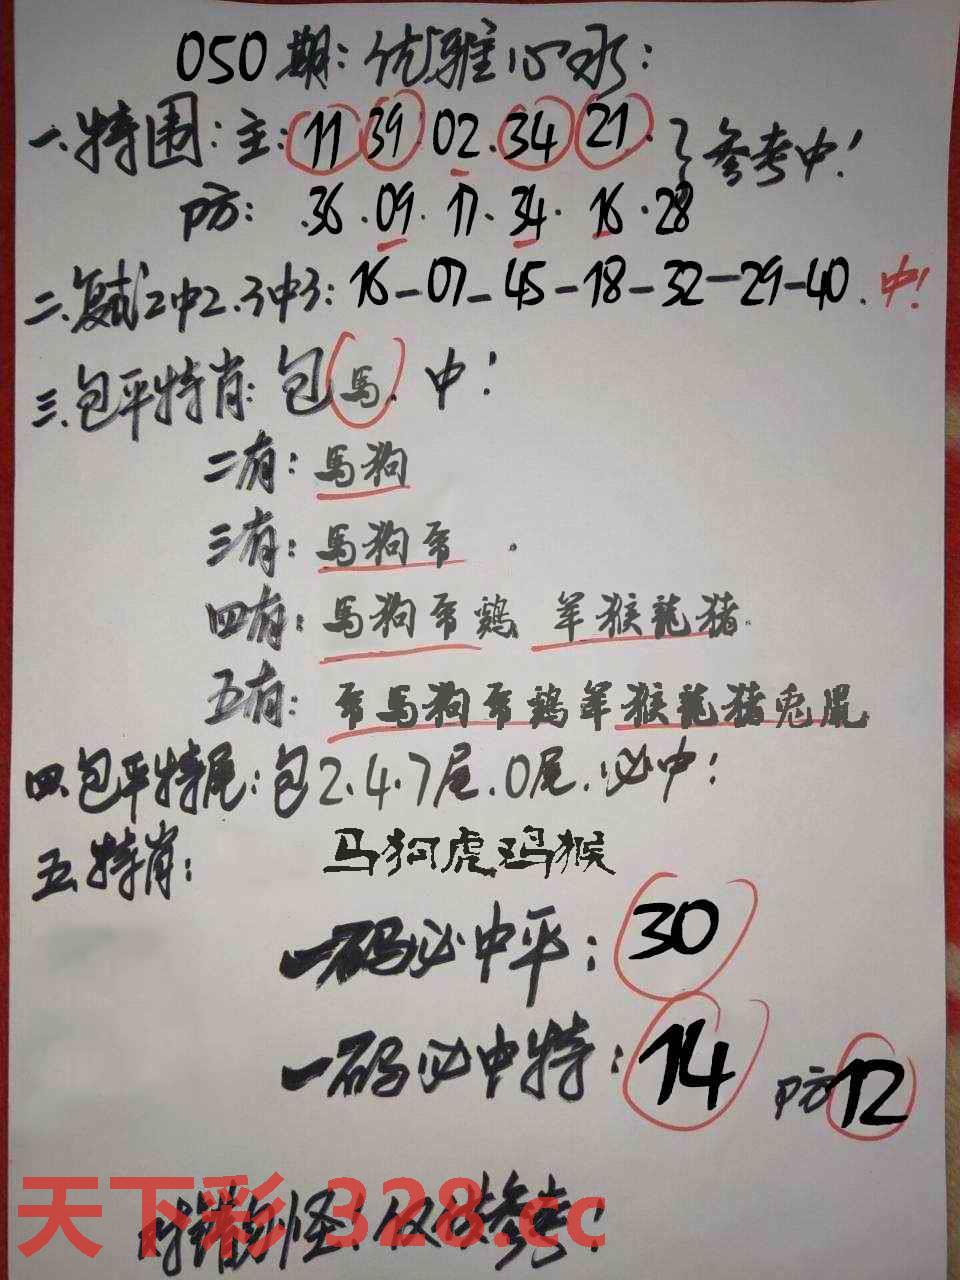 050期:优雅心水:
一.特围:主:11 39 02.34 21.}参考中!
防: .36.09.17.34.16.28
二.复式2中2.3中3:16-07-45-18-32-29-40.中!
三.包平特肖:包马.中!
二有:馬狗
三有:馬狗帝.
四有:馬狗帝鷄 羊猴龍猪.
五有:帝馬狗帝鷄羊猴龍猪兎鼠
四.包平特尾:包2.4.7尾.0尾.必中!
五.特肖: 马狗虎鸡猴
一码必中平:30
一码必中特:14 防12
好错勿怪!仅供参考!
天下彩 328.cc